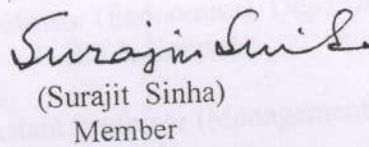 Surajit Sinha
(Surajit Sinha)
Member